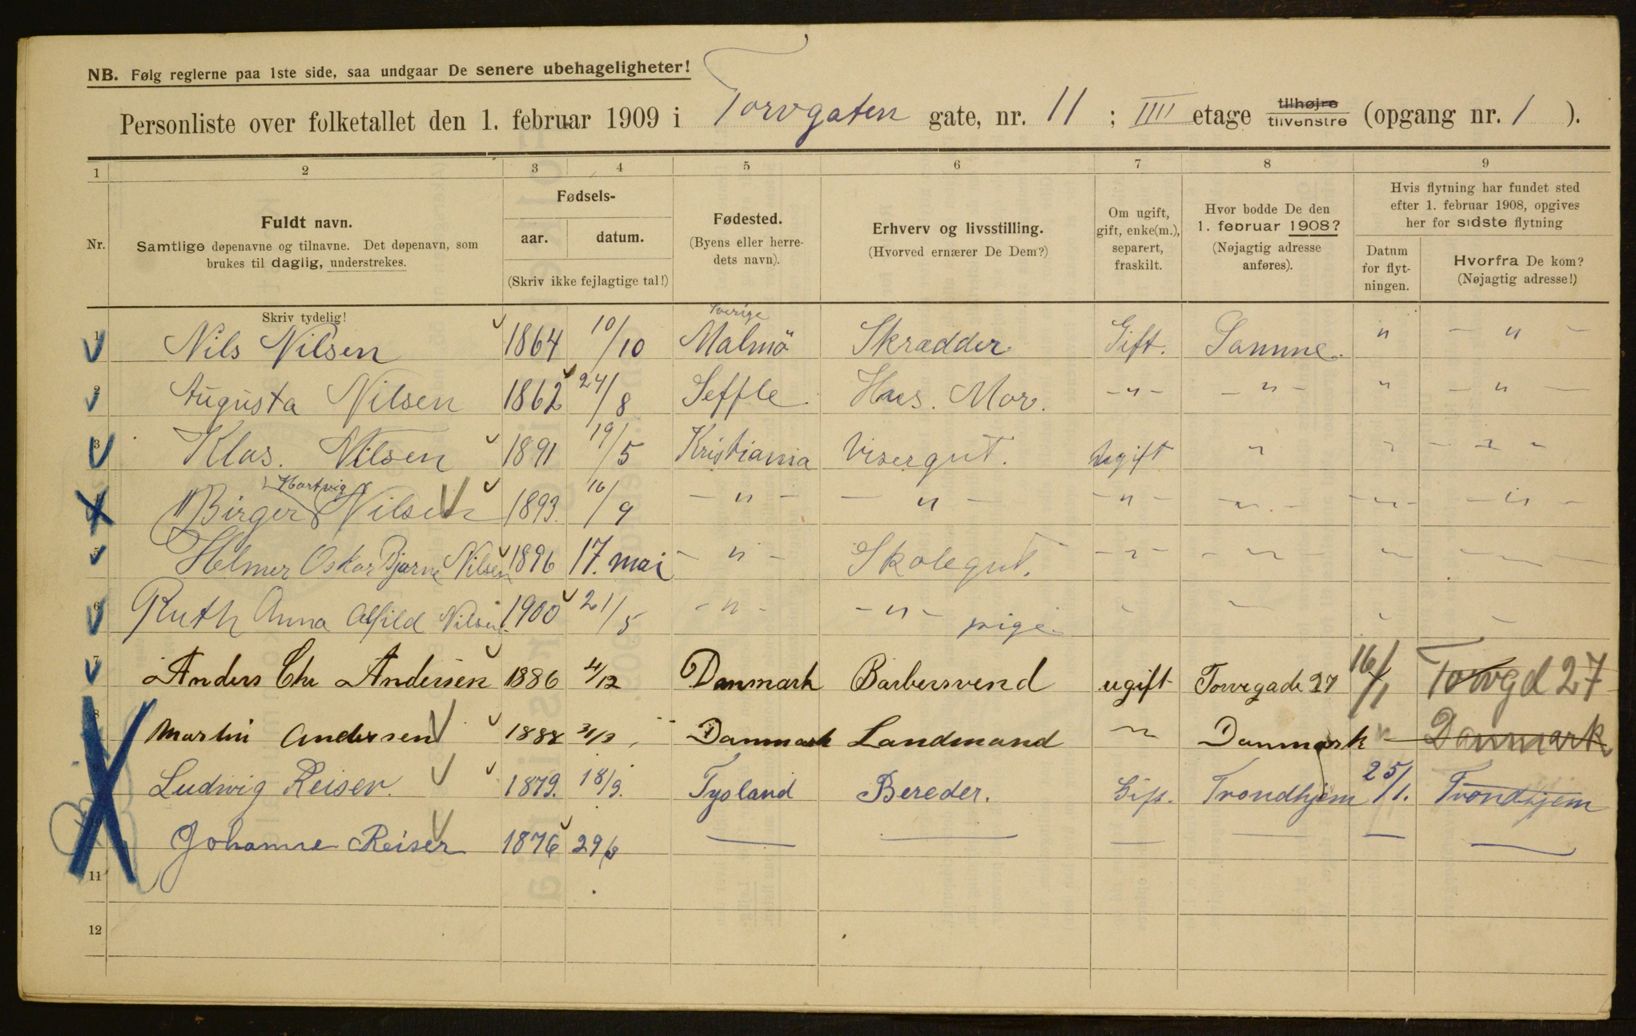 NB. Følg reglerne paa 1ste side, saa undgaar De senere ubehageligheter!
Personliste over folketallet den 1. februar 1909 i Torvgaten gate, nr. 11 ; III etage tilhøjre tilvenstre (opgang nr. 1 ).
1 2 3 4 5 6 7 8 9
Nr.
Fuldt navn.
Samtlige døpenavne og tilnavne. Det døpenavn, som
brukes til daglig, understrekes.
Fødsels-
aar. datum.
(Skriv ikke fejlagtige tal!)
Fødested.
(Byens eller herre-
dets navn).
Erhverv og livsstilling.
(Hvorved ernærer De Dem?)
Om ugift,
gift, enke(m.),
separert,
fraskilt.
Hvor bodde De den
1. februar 1908?
(Nøjagtig adresse
anføres).
Hvis flytning har fundet sted
efter 1. februar 1908, opgives
her for sidste flytning
Datum
for flyt-
ningen.
Hvorfra De kom?
(Nøjagtig adresse!)
Skriv tydelig!
Sverige
1 Nils Nilsen 1864 10/10 Malmö Skrædder Gift. Samme. " - " -
2 Augusta Nilsen 1862 24/8 Seffle Hus. Mor. - " - - " - " - " -
3 Klas. Nilsen 1891 19/5 Kristiania Visergut. Ugift " " - " -
Hartvig
Birger Nilsen 1893. 16/9 - " - - " - - " - - " - - " - - " -
5 Helmer Oskar Bjarne Nilsen 1896 17. mai - " - Skolegut. - " - - " - " "
6 Ruth Anna Alfild Nilsen. 1900 21/5 - " - - " - pige.
7 Anders Chr Andersen 1886 4/12 Danmark Barbersvend ugift Torvegade 27 16/1 Torvgd 27
8 Martin Andersen 1888 Danmark Landmand " Danmark " Danmark
Ludwig Reiser. 1879. 18/9. Tysland Bereder. Gift. Trondhjem 25/1. Trondhjem
Johanne Reiser 1876 29/6
11
12